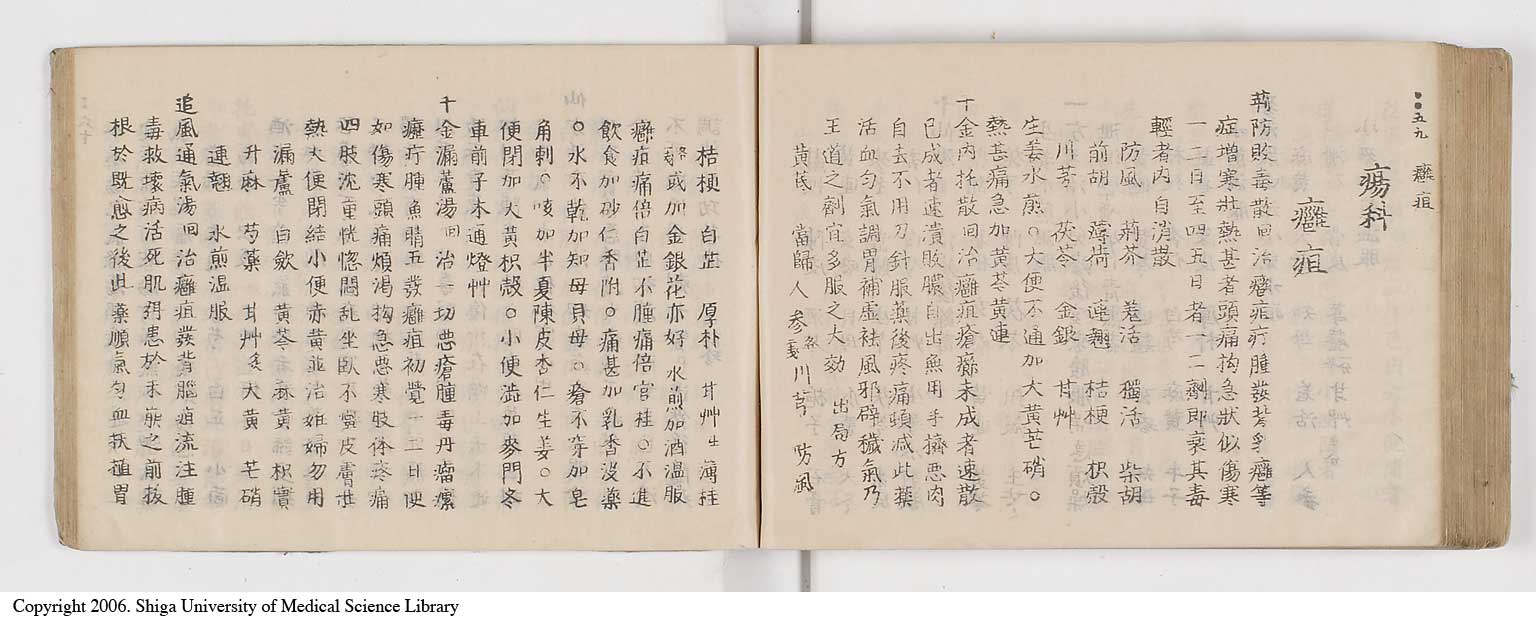 五九 癰疽
瘍科
癰疽
荊防敗毒散 回 治癰疽疔腫發背乳癰等
症增寒壯熱甚者頭痛拘急狀似傷寒
一二日至四五日者一二劑即衰其毒
輕者內自消散
防風 荊芥 羗活 獨活 柴胡
前胡 薄荷 連翹 桔梗 枳殼
川芎 茯苓 金銀 甘艸
生姜水煎○大便不通加大黃芒硝○
熱甚痛急加黃芩黃連
千金內托散 回 治癰疽瘡癤未成者速散
已成者速潰敗膿自出無用手擠惡肉
自去不用刀針服藥後疼痛頓減此藥
活血勻氣調胃補虛袪風邪辟穢氣乃
王道之劑宜多服之大効 出局方
黃芪 當歸 人參 川芎 防風
桔梗 白芷 厚朴 甘艸生 薄桂
或加金銀花亦好 水煎加酒溫服
癰疽痛倍白芷不腫痛倍官桂○不進
飲食加砂仁香附○痛甚加乳香沒藥
○水不乾加知母貝母○瘡不穿加皂
角刺○咳加半夏陳皮杏仁生姜○大
便閉加大黃枳殼○小便澁加麥門冬
車前子木通燈艸
千金漏蘆湯 回 治一切惡瘡腫毒丹瘤瘰
癧疔腫魚睛五發癰疽初覺一二日便
如傷寒頭痛煩渴拘急惡寒肢体疼痛
四肢沈重恍惚悶乱坐臥不寧皮膚壯
熱大便閉結小便赤黃並治姙婦勿用
漏蘆 白歛 黃芩 麻黃 枳實
升麻 芍藥 甘艸炙 大黃 芒硝
連翹 水煎溫服
追風通氣湯 回 治癰疽發背腦疽流注腫
毒救壞病活死肌弭患於未崩之前拔
根於既愈之後此藥順氣勻血扶植胃